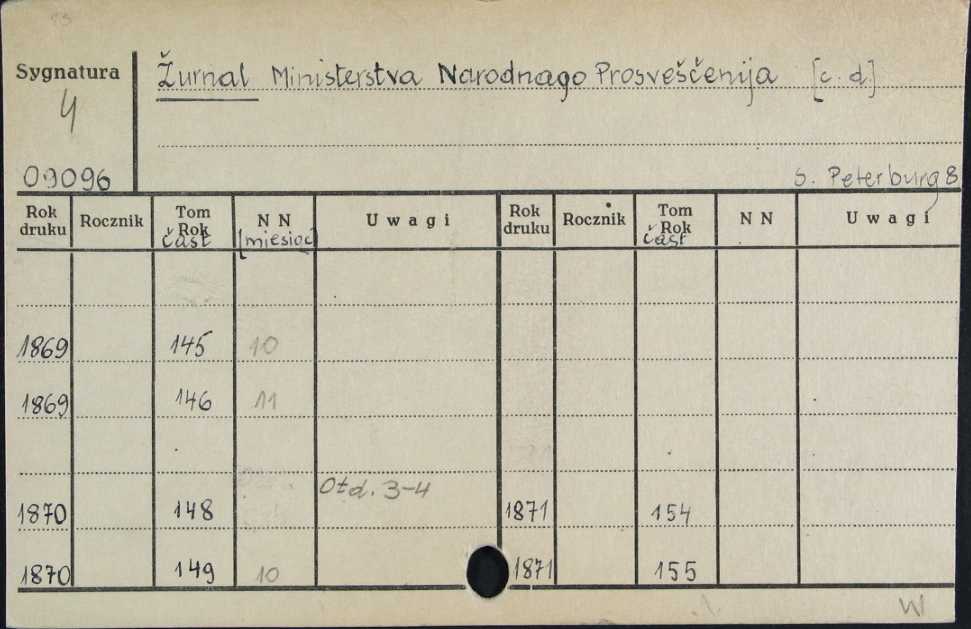 Sygnatura
Žurnal Ministerstva Narodnago Prosveščenija [c. d.]
4
09096
S. Peterburg 8
Rok druku Rocznik Tom Rok čast' N N [miesiąc] Uwagi Rok druku Rocznik Tom Rok čast' N N Uwagi
1869 145 10
1869 146 11
Otd. 3-4
1870 148 1871 154
1870 149 10 1871 155
W